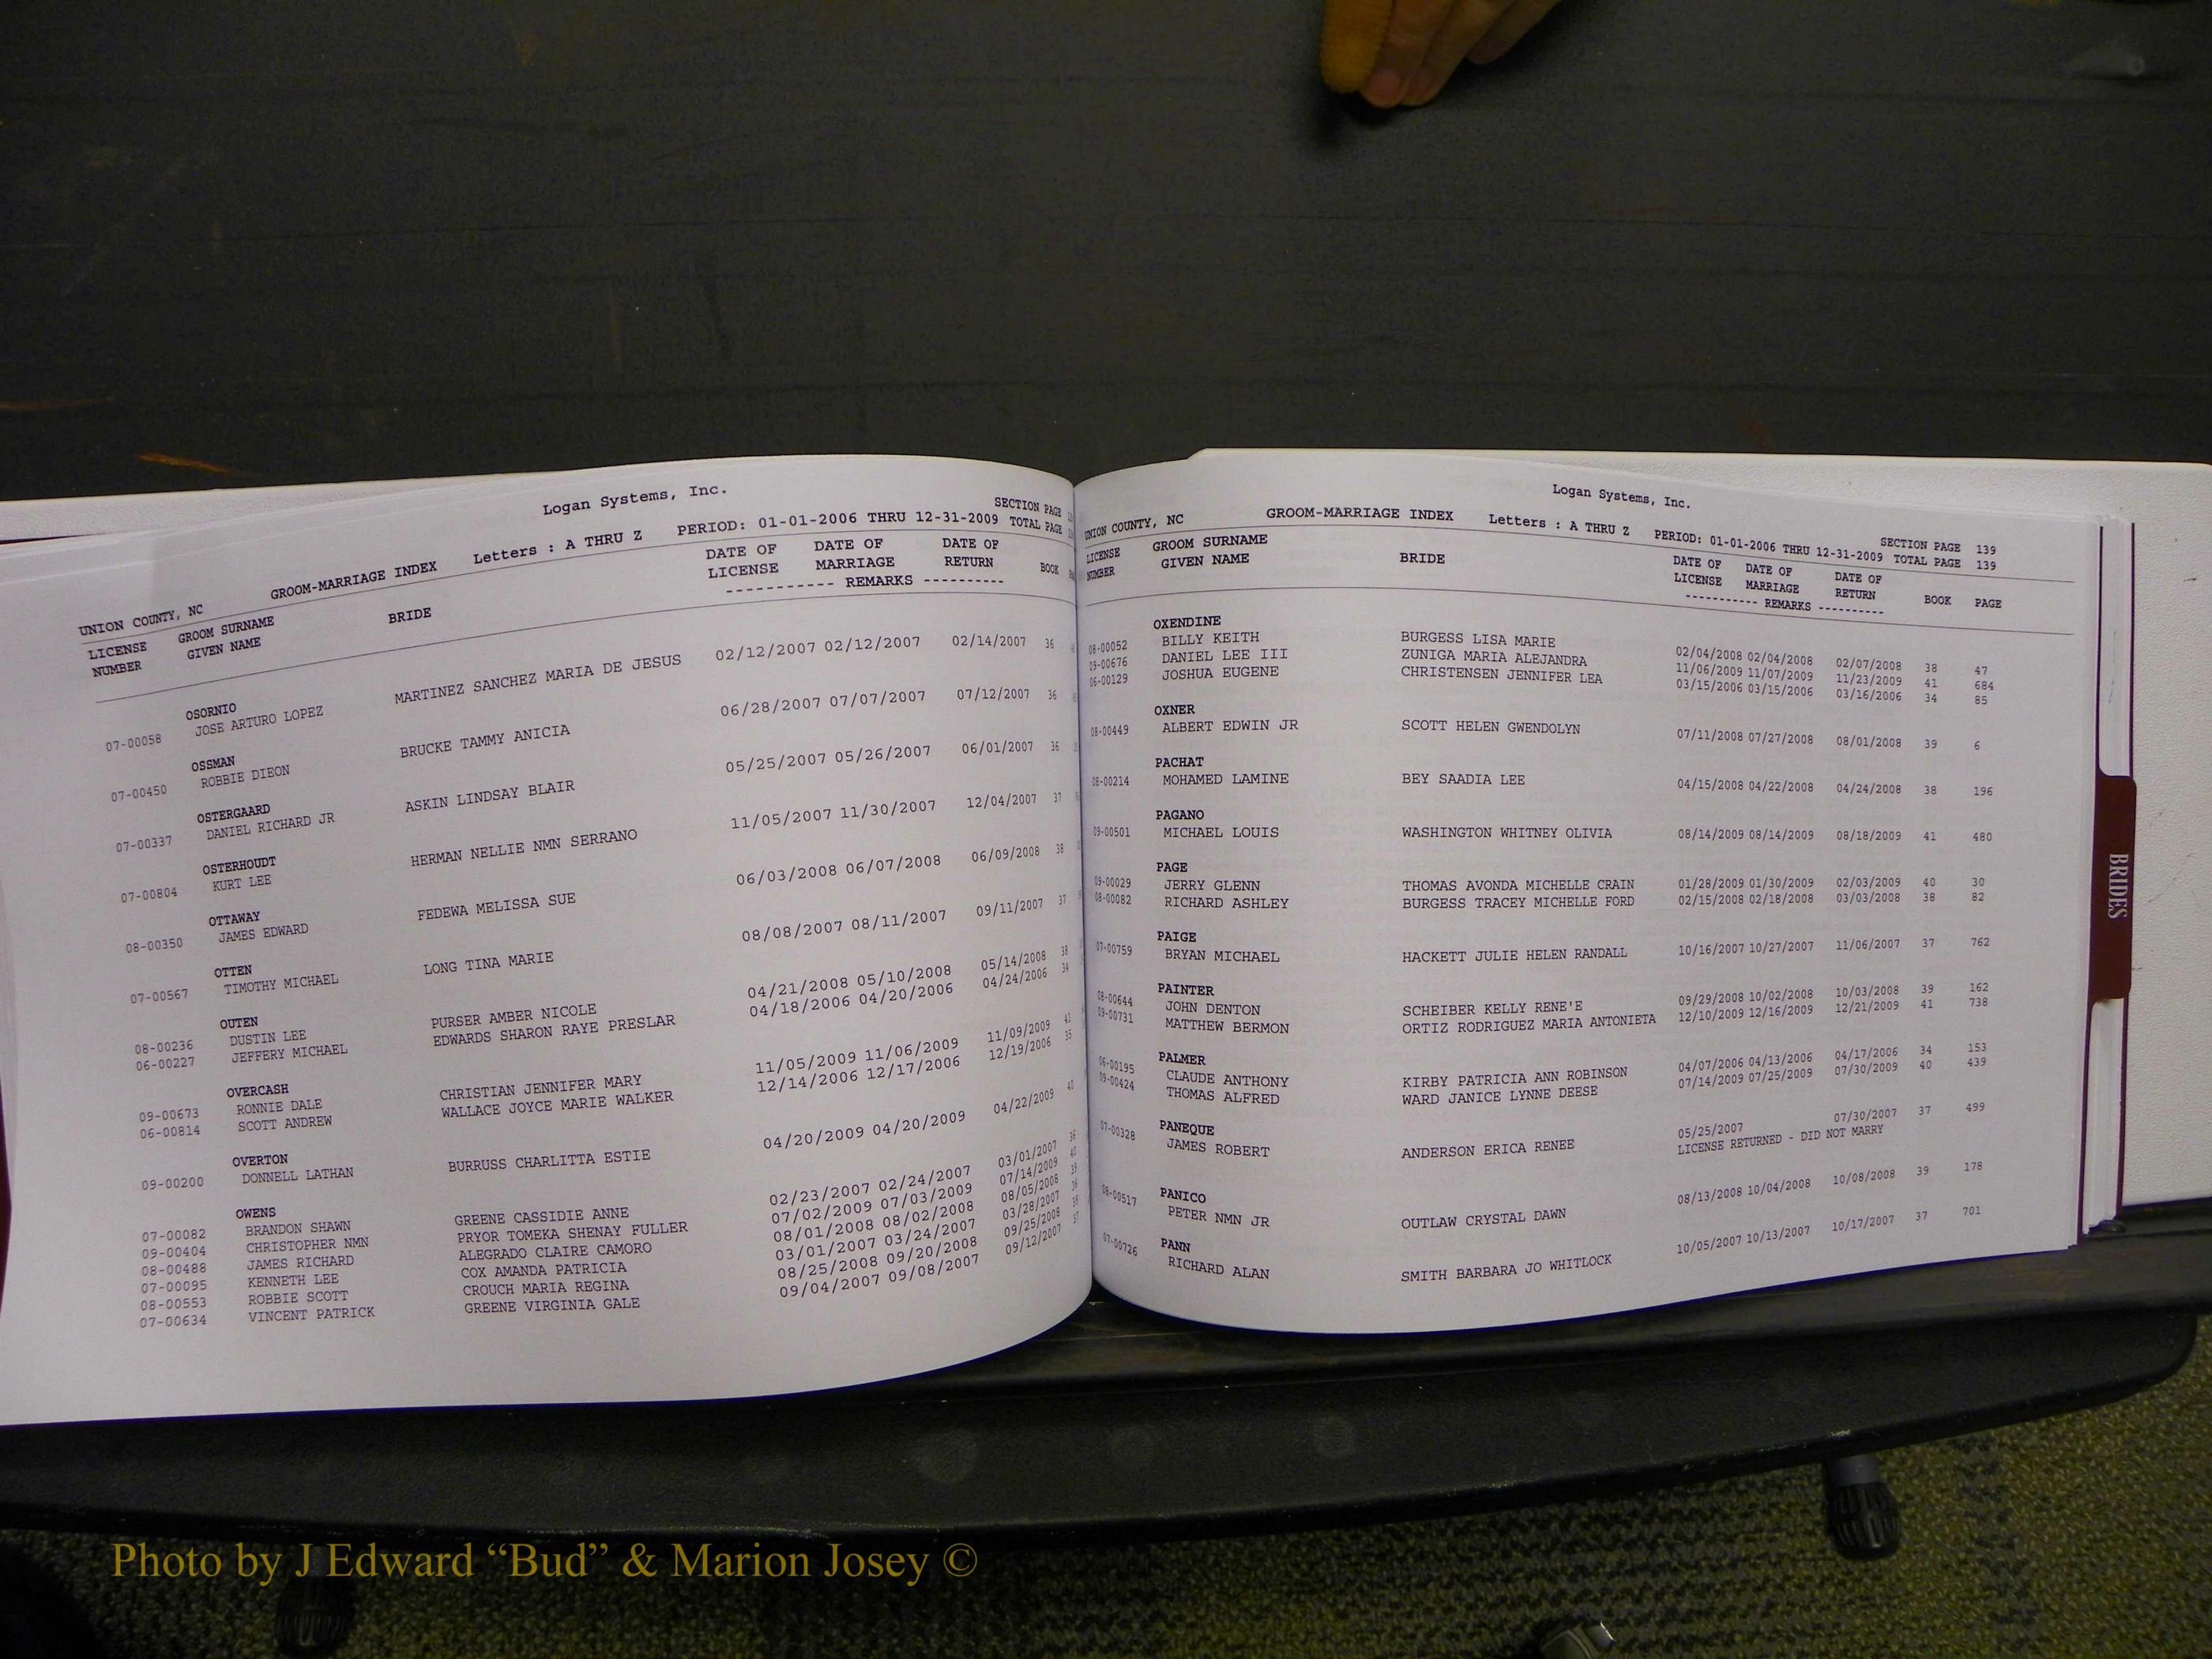 Logan Systems, Inc.
SECTION PAGE
UNION COUNTY, NC GROOM-MARRIAGE INDEX Letters : A THRU Z PERIOD: 01-01-2006 THRU 12-31-2009 TOTAL PAGE
LICENSE GROOM SURNAME DATE OF DATE OF DATE OF
NUMBER GIVEN NAME BRIDE LICENSE MARRIAGE RETURN BOOK
---------- REMARKS ----------
OSORNIO
07-00058 JOSE ARTURO LOPEZ MARTINEZ SANCHEZ MARIA DE JESUS 02/12/2007 02/12/2007 02/14/2007 36
OSSMAN
07-00450 ROBBIE DIEON BRUCKE TAMMY ANICIA 06/28/2007 07/07/2007 07/12/2007 36
OSTERGAARD
07-00337 DANIEL RICHARD JR ASKIN LINDSAY BLAIR 05/25/2007 05/26/2007 06/01/2007 36
OSTERHOUDT
07-00804 KURT LEE HERMAN NELLIE NMN SERRANO 11/05/2007 11/30/2007 12/04/2007 37
OTTAWAY
08-00350 JAMES EDWARD FEDEWA MELISSA SUE 06/03/2008 06/07/2008 06/09/2008 38
OTTEN
07-00567 TIMOTHY MICHAEL LONG TINA MARIE 08/08/2007 08/11/2007 09/11/2007 37
OUTEN
08-00236 DUSTIN LEE PURSER AMBER NICOLE 04/21/2008 05/10/2008 05/14/2008 38
06-00227 JEFFERY MICHAEL EDWARDS SHARON RAYE PRESLAR 04/18/2006 04/20/2006 04/24/2006 34
OVERCASH
09-00673 RONNIE DALE CHRISTIAN JENNIFER MARY 11/05/2009 11/06/2009 11/09/2009
06-00814 SCOTT ANDREW WALLACE JOYCE MARIE WALKER 12/14/2006 12/17/2006 12/19/2006 35
OVERTON
09-00200 DONNELL LATHAN BURRUSS CHARLITTA ESTIE 04/20/2009 04/20/2009 04/22/2009 40
OWENS
07-00082 BRANDON SHAWN GREENE CASSIDIE ANNE 02/23/2007 02/24/2007 03/01/2007 36
09-00404 CHRISTOPHER NMN PRYOR TOMEKA SHENAY FULLER 07/02/2009 07/03/2009 07/14/2009 40
08-00488 JAMES RICHARD ALEGRADO CLAIRE CAMORO 08/01/2008 08/02/2008 08/05/2008 39
07-00095 KENNETH LEE COX AMANDA PATRICIA 03/01/2007 03/24/2007 03/28/2007 36
08-00553 ROBBIE SCOTT CROUCH MARIA REGINA 08/25/2008 09/20/2008 09/25/2008
07-00634 VINCENT PATRICK GREENE VIRGINIA GALE 09/04/2007 09/08/2007 09/12/2007 37
Logan Systems, Inc.
SECTION PAGE 139
UNION COUNTY, NC GROOM-MARRIAGE INDEX Letters : A THRU Z PERIOD: 01-01-2006 THRU 12-31-2009 TOTAL PAGE 139
LICENSE GROOM SURNAME DATE OF DATE OF DATE OF
NUMBER GIVEN NAME BRIDE LICENSE MARRIAGE RETURN BOOK PAGE
----------- REMARKS ----------
OXENDINE
08-00052 BILLY KEITH BURGESS LISA MARIE 02/04/2008 02/04/2008 02/07/2008 38 47
09-00676 DANIEL LEE III ZUNIGA MARIA ALEJANDRA 11/06/2009 11/07/2009 11/23/2009 41 684
06-00129 JOSHUA EUGENE CHRISTENSEN JENNIFER LEA 03/15/2006 03/15/2006 03/16/2006 34 85
OXNER
08-00449 ALBERT EDWIN JR SCOTT HELEN GWENDOLYN 07/11/2008 07/27/2008 08/01/2008 39 6
PACHAT
08-00214 MOHAMED LAMINE BEY SAADIA LEE 04/15/2008 04/22/2008 04/24/2008 38 196
PAGANO
09-00501 MICHAEL LOUIS WASHINGTON WHITNEY OLIVIA 08/14/2009 08/14/2009 08/18/2009 41 480
PAGE
09-00029 JERRY GLENN THOMAS AVONDA MICHELLE CRAIN 01/28/2009 01/30/2009 02/03/2009 40 30
08-00082 RICHARD ASHLEY BURGESS TRACEY MICHELLE FORD 02/15/2008 02/18/2008 03/03/2008 38 82
PAIGE
07-00759 BRYAN MICHAEL HACKETT JULIE HELEN RANDALL 10/16/2007 10/27/2007 11/06/2007 37 762
PAINTER
08-00644 JOHN DENTON SCHEIBER KELLY RENE'E 09/29/2008 10/02/2008 10/03/2008 39 162
09-00731 MATTHEW BERMON ORTIZ RODRIGUEZ MARIA ANTONIETA 12/10/2009 12/16/2009 12/21/2009 41 738
PALMER
06-00195 CLAUDE ANTHONY KIRBY PATRICIA ANN ROBINSON 04/07/2006 04/13/2006 04/17/2006 34 153
09-00424 THOMAS ALFRED WARD JANICE LYNNE DEESE 07/14/2009 07/25/2009 07/30/2009 40 439
PANEQUE
07-00328 JAMES ROBERT ANDERSON ERICA RENEE 05/25/2007 07/30/2007 37 499
LICENSE RETURNED - DID NOT MARRY
PANICO
08-00517 PETER NMN JR OUTLAW CRYSTAL DAWN 08/13/2008 10/04/2008 10/08/2008 39 178
PANN
07-00726 RICHARD ALAN SMITH BARBARA JO WHITLOCK 10/05/2007 10/13/2007 10/17/2007 37 701
BRIDES
Photo by J Edward “Bud” & Marion Josey ©